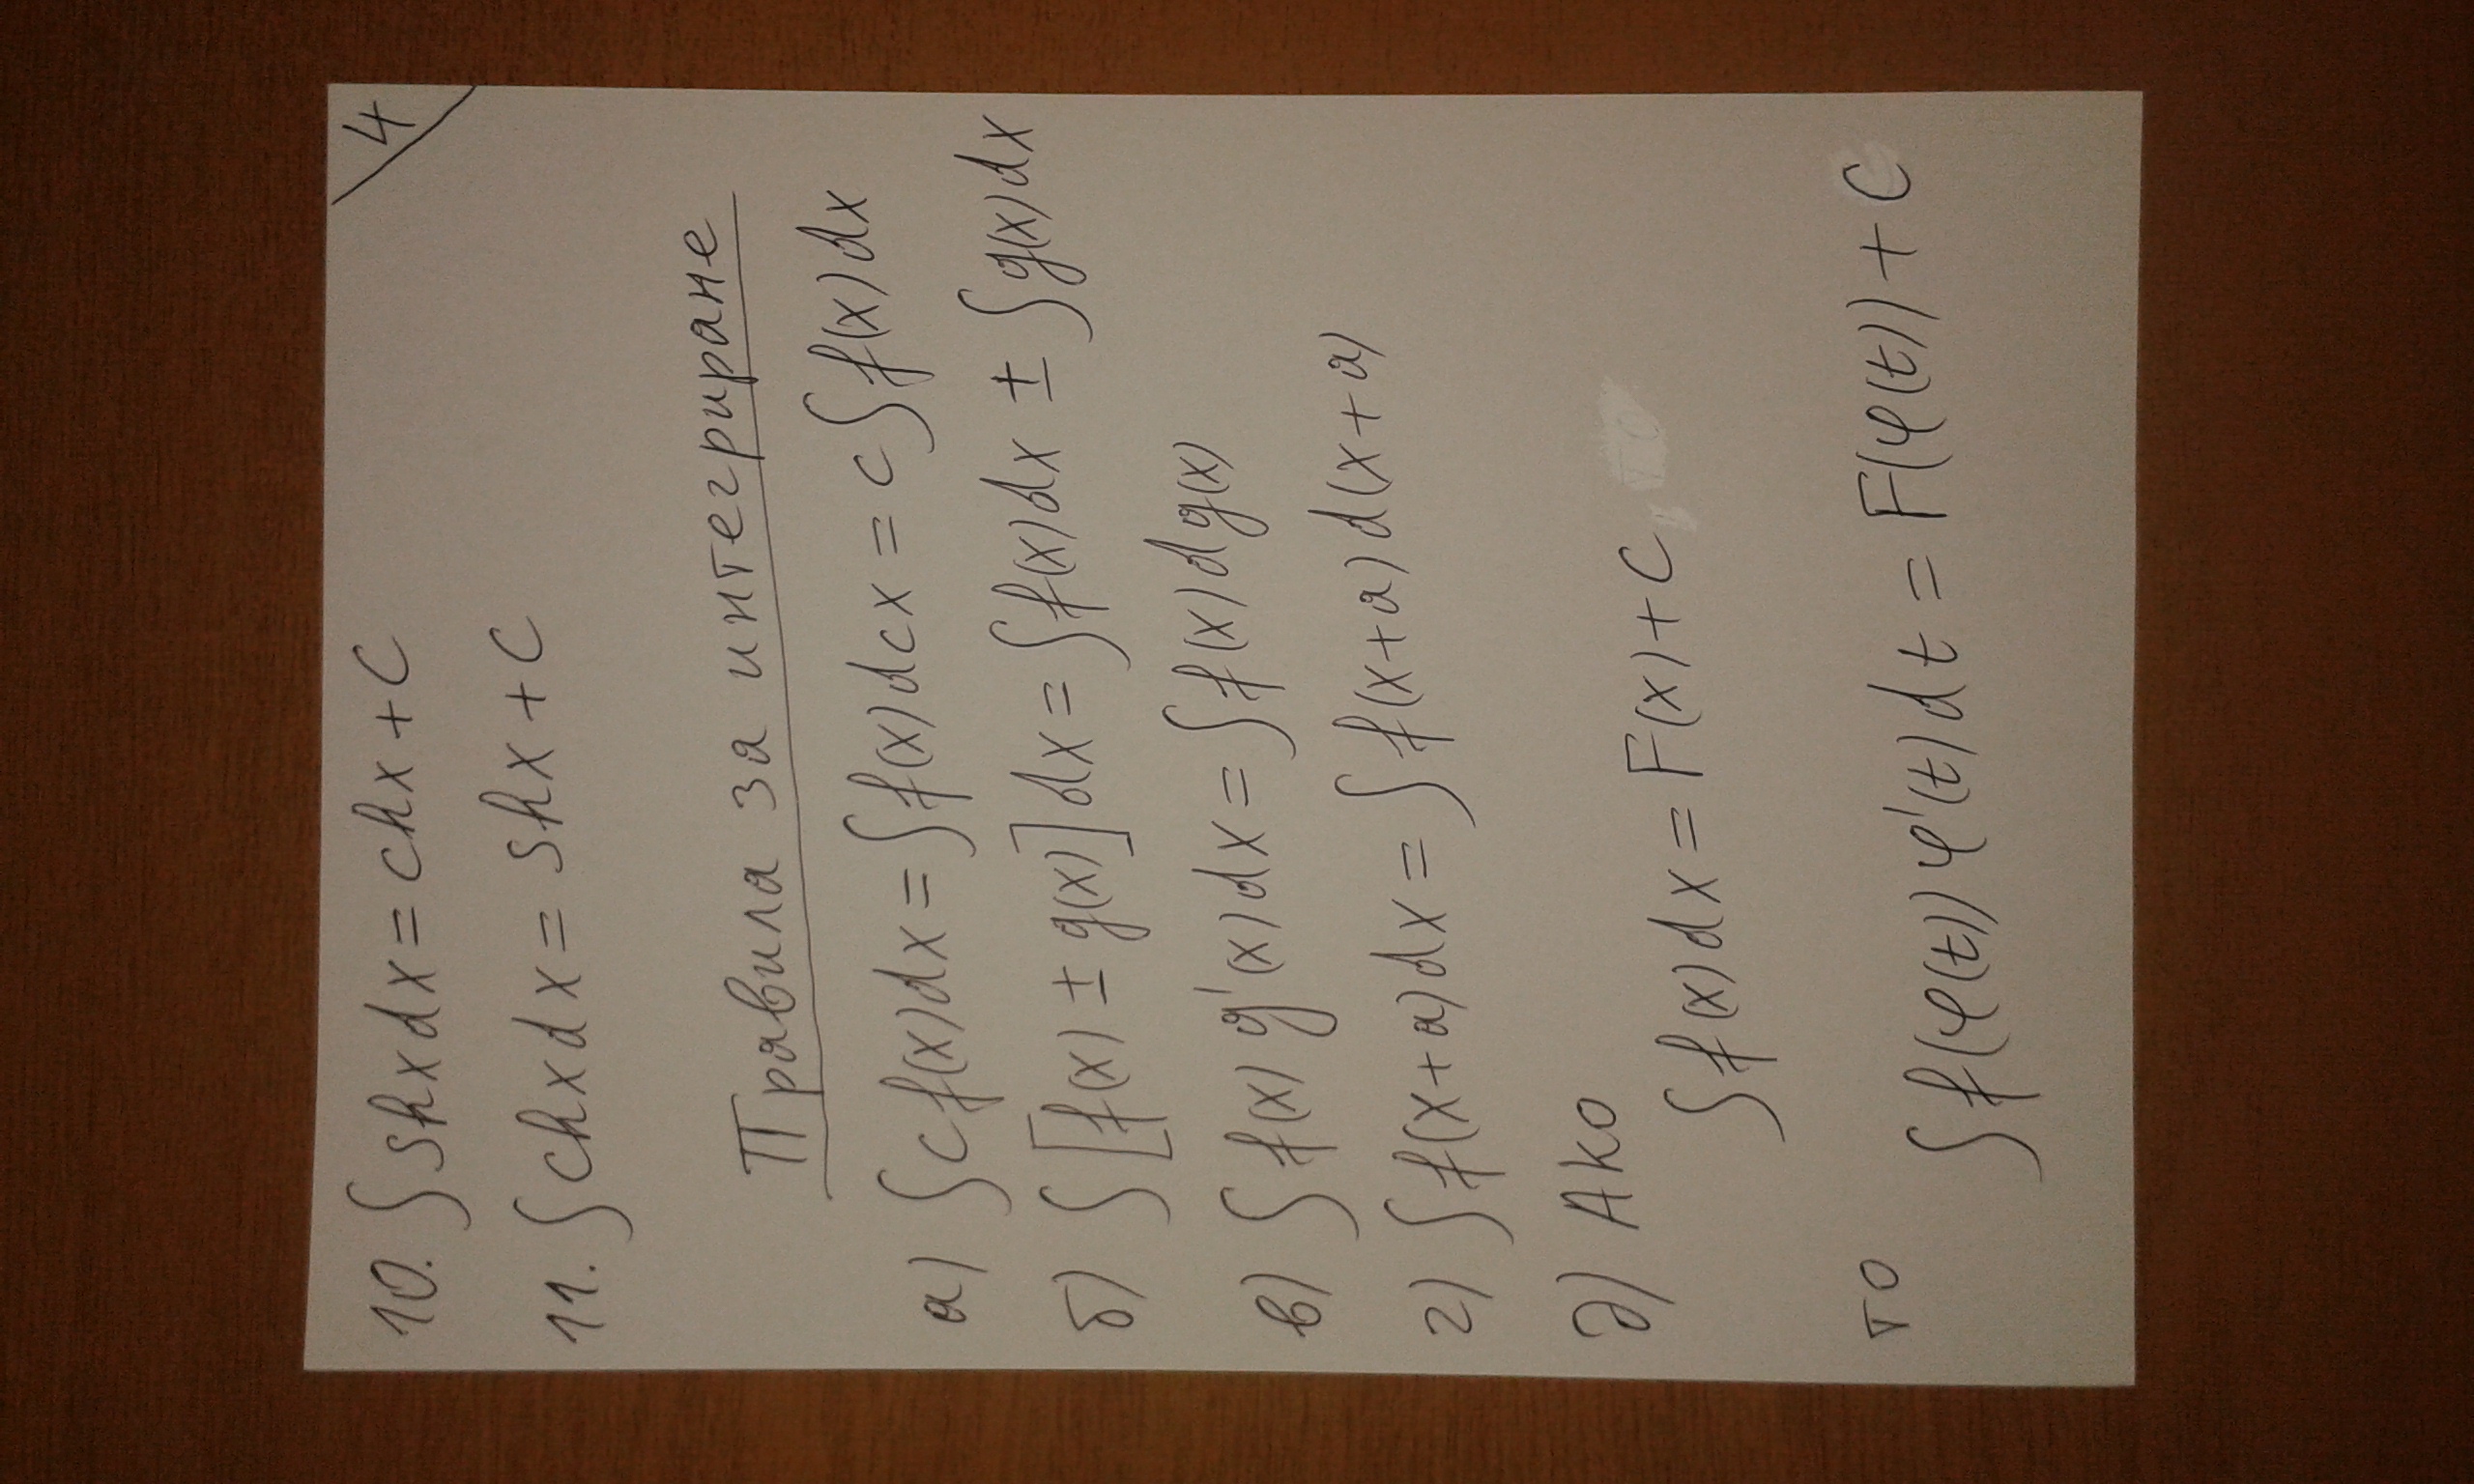 4
10. ∫ shx dx = chx + C
11. ∫ chx dx = shx + C
Правила за интегриране
а) ∫ c f(x) dx = ∫ f(x) dcx = c ∫ f(x) dx
б) ∫ [f(x) ± g(x)] dx = ∫ f(x) dx ± ∫ g(x) dx
в) ∫ f(x) g'(x) dx = ∫ f(x) d g(x)
г) ∫ f(x+a) dx = ∫ f(x+a) d(x+a)
д) Ако
∫ f(x) dx = F(x) + C
то
∫ f(φ(t)) φ'(t) dt = F(φ(t)) + C